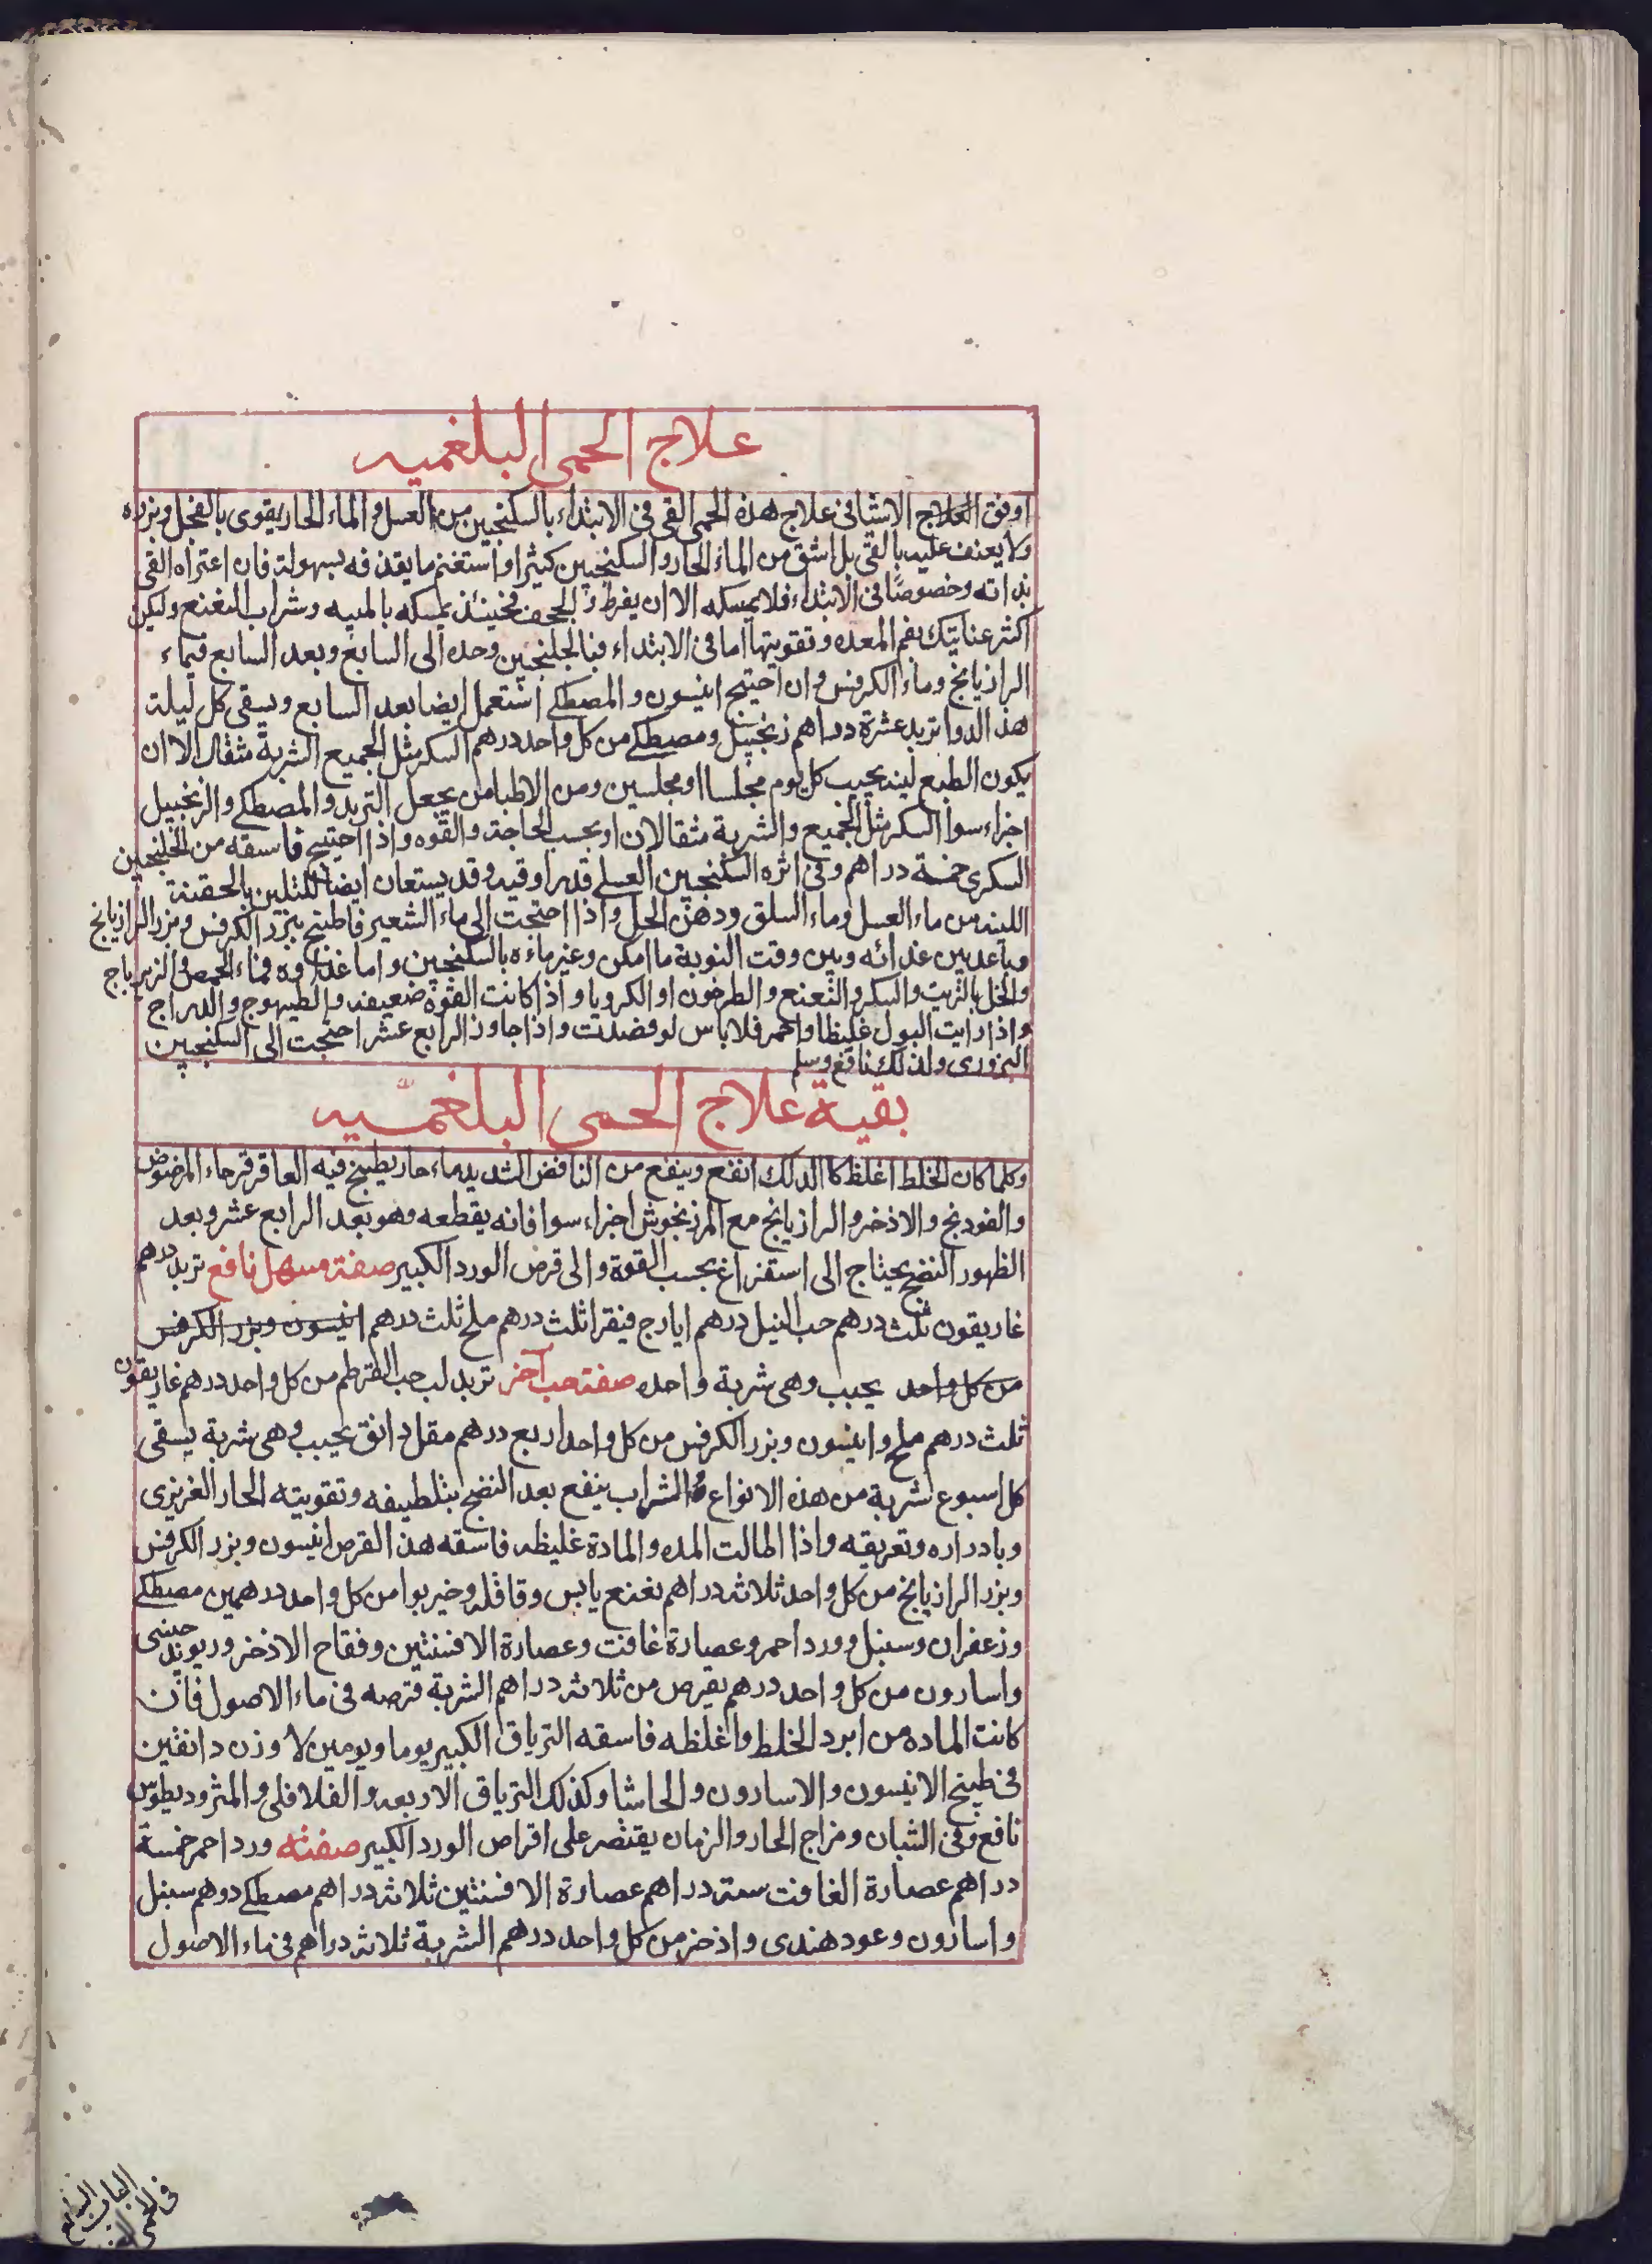 علاج الحمى البلغميه
اوفق العلاج الاشافى علاج هذه الحمى القى فى الابتداء بالسكنجبين من العسل و الماء الحار يقوى بالفجل وبزره
ولا يعنف عليه بالقى بل اشق من الماء الحار والسكنجبين كثيرا و استغنم ما يقذفه بسهولة فان اعتراه القى
بذاته وخصوصًا فى الابتداء فلا يمسكه الا ان يفرط و يجحف فحينئذ يمسكه بالميبه وشراب النعنع وليكن
اكثر عنايتك بفم المعده وتقويتها اما فى الابتداء فبالجلنجبين وحده الى السابع وبعد السابع فبماء
الرازيانج وماء الكرفس وان احتيج انيسون والمصطكى استعمل ايضا بعد السابع ويسقى كل ليلة
هذ الدوا تربد عشرة دراهم زنجبيل ومصطكى من كل واحد درهم السكر مثل الجميع الشربة مثقال الا ان
يكون الطبع لينه يجيب كل يوم مجلسا او مجلسين ومن الاطبا من يجعل التربد والمصطكى والزنجبيل
اجزاء سوا السكر مثل الجميع والشربة مثقالان او بحسب الحاجة والقوه واذا احتيج فاسقه من الجلنجبين
السكرى خمسة دراهم وفى اثره السكنجبين العسلى قدر اوقيه وقد يستعان ايضا للتلين بالحقنة
اللينه من ماء العسل وماء السلق ودهن الحل واذا احتجت الى ماء الشعير فاطبخ ببزر الكرفس وبزر الرازيانج
وباعد بين غذائه وبين وقت النوبة ما امكن وغير ماءه بالسكنجبين واما غذاوه فماء الحمص والزيرباج
والخل بالزيت والسكر والنعنع والطرخون او الكرويا واذا كانت القوه ضعيفه والطيهوج والدراج
واذا رايت البول غليظا واحمر فلا باس لو فصدت واذا جاوز الرابع عشر احتجت الى السكنجبين
البزورى ولذلك نافع وسلم
بقية علاج الحمى البلغميه
وكلما كان الخلط اغلظ كا الدلك انفع وينفع من النافض الشديد ماء حار يطبخ فيه العاقرقرحاء المرضوض
والفودنج والاذخر والرازيانج مع المرزنجوش اجزاء سوا فانه يقطعه وهو بعد الرابع عشر وبعد
الظهور النضج يحتاج الى استفراغ بحسب القوة والى قرص الورد الكبير صفة مسهل نافع تربد درهم
غاريقون ثلث درهم حب النيل درهم ايارج فيقرا ثلث درهم ملح ثلث درهم انيسون وبزر الكرفس
من كل واحد يحبب وهى شربة واحده صفة حب آخر تربد لب حب القرطم من كل واحد درهم غاريقون
ثلث درهم ملح و انيسون وبزر الكرفس من كل واحد اربع درهم مقل دانق يحبب وهى شربة يسقى
كل اسبوع شربة من هذه الانواع والشراب ينفع بعد النضج بتلطيفه وتقويته الحار الغريزى
وبادراره وتعريقه واذا الطالت المده والمادة غليظه فاسقه هذ القرص انيسون وبزر الكرفس
وبزر الرازيانج من كل واحد ثلاثه دراهم نعنع يابس وقاقله وخيربوا من كل واحد درهمين مصطكى
وزعفران وسنبل وورد احمر وعصارة غافت وعصارة الافسنتين وفقاح الاذخر وريوند صينى
واسارون من كل واحد درهم يقرص من ثلاثه دراهم الشربة قرصه فى ماء الاصول فان
كانت الماده من ابرد الخلط واغلظه فاسقه الترياق الكبير يوما ويومين لا وزن دانقين
فى طبيخ الانيسون والاسارون والحاشا وكذلك الترياق الاربعه والفلافلى والمثروديطوس
نافع وفى الشبان ومزاج الحار والزمان يقتصر على اقراص الورد الكبير صفته ورد احمر خمسة
دراهم عصارة الغافت ستة دراهم عصارة الافسنتين ثلاثه دراهم مصطكى دوهم سنبل
واسارون وعود هندى واذخر من كل واحد درهم الشربة ثلاثه دراهم فى ماء الاصول
الباب السابع
فى الحمى